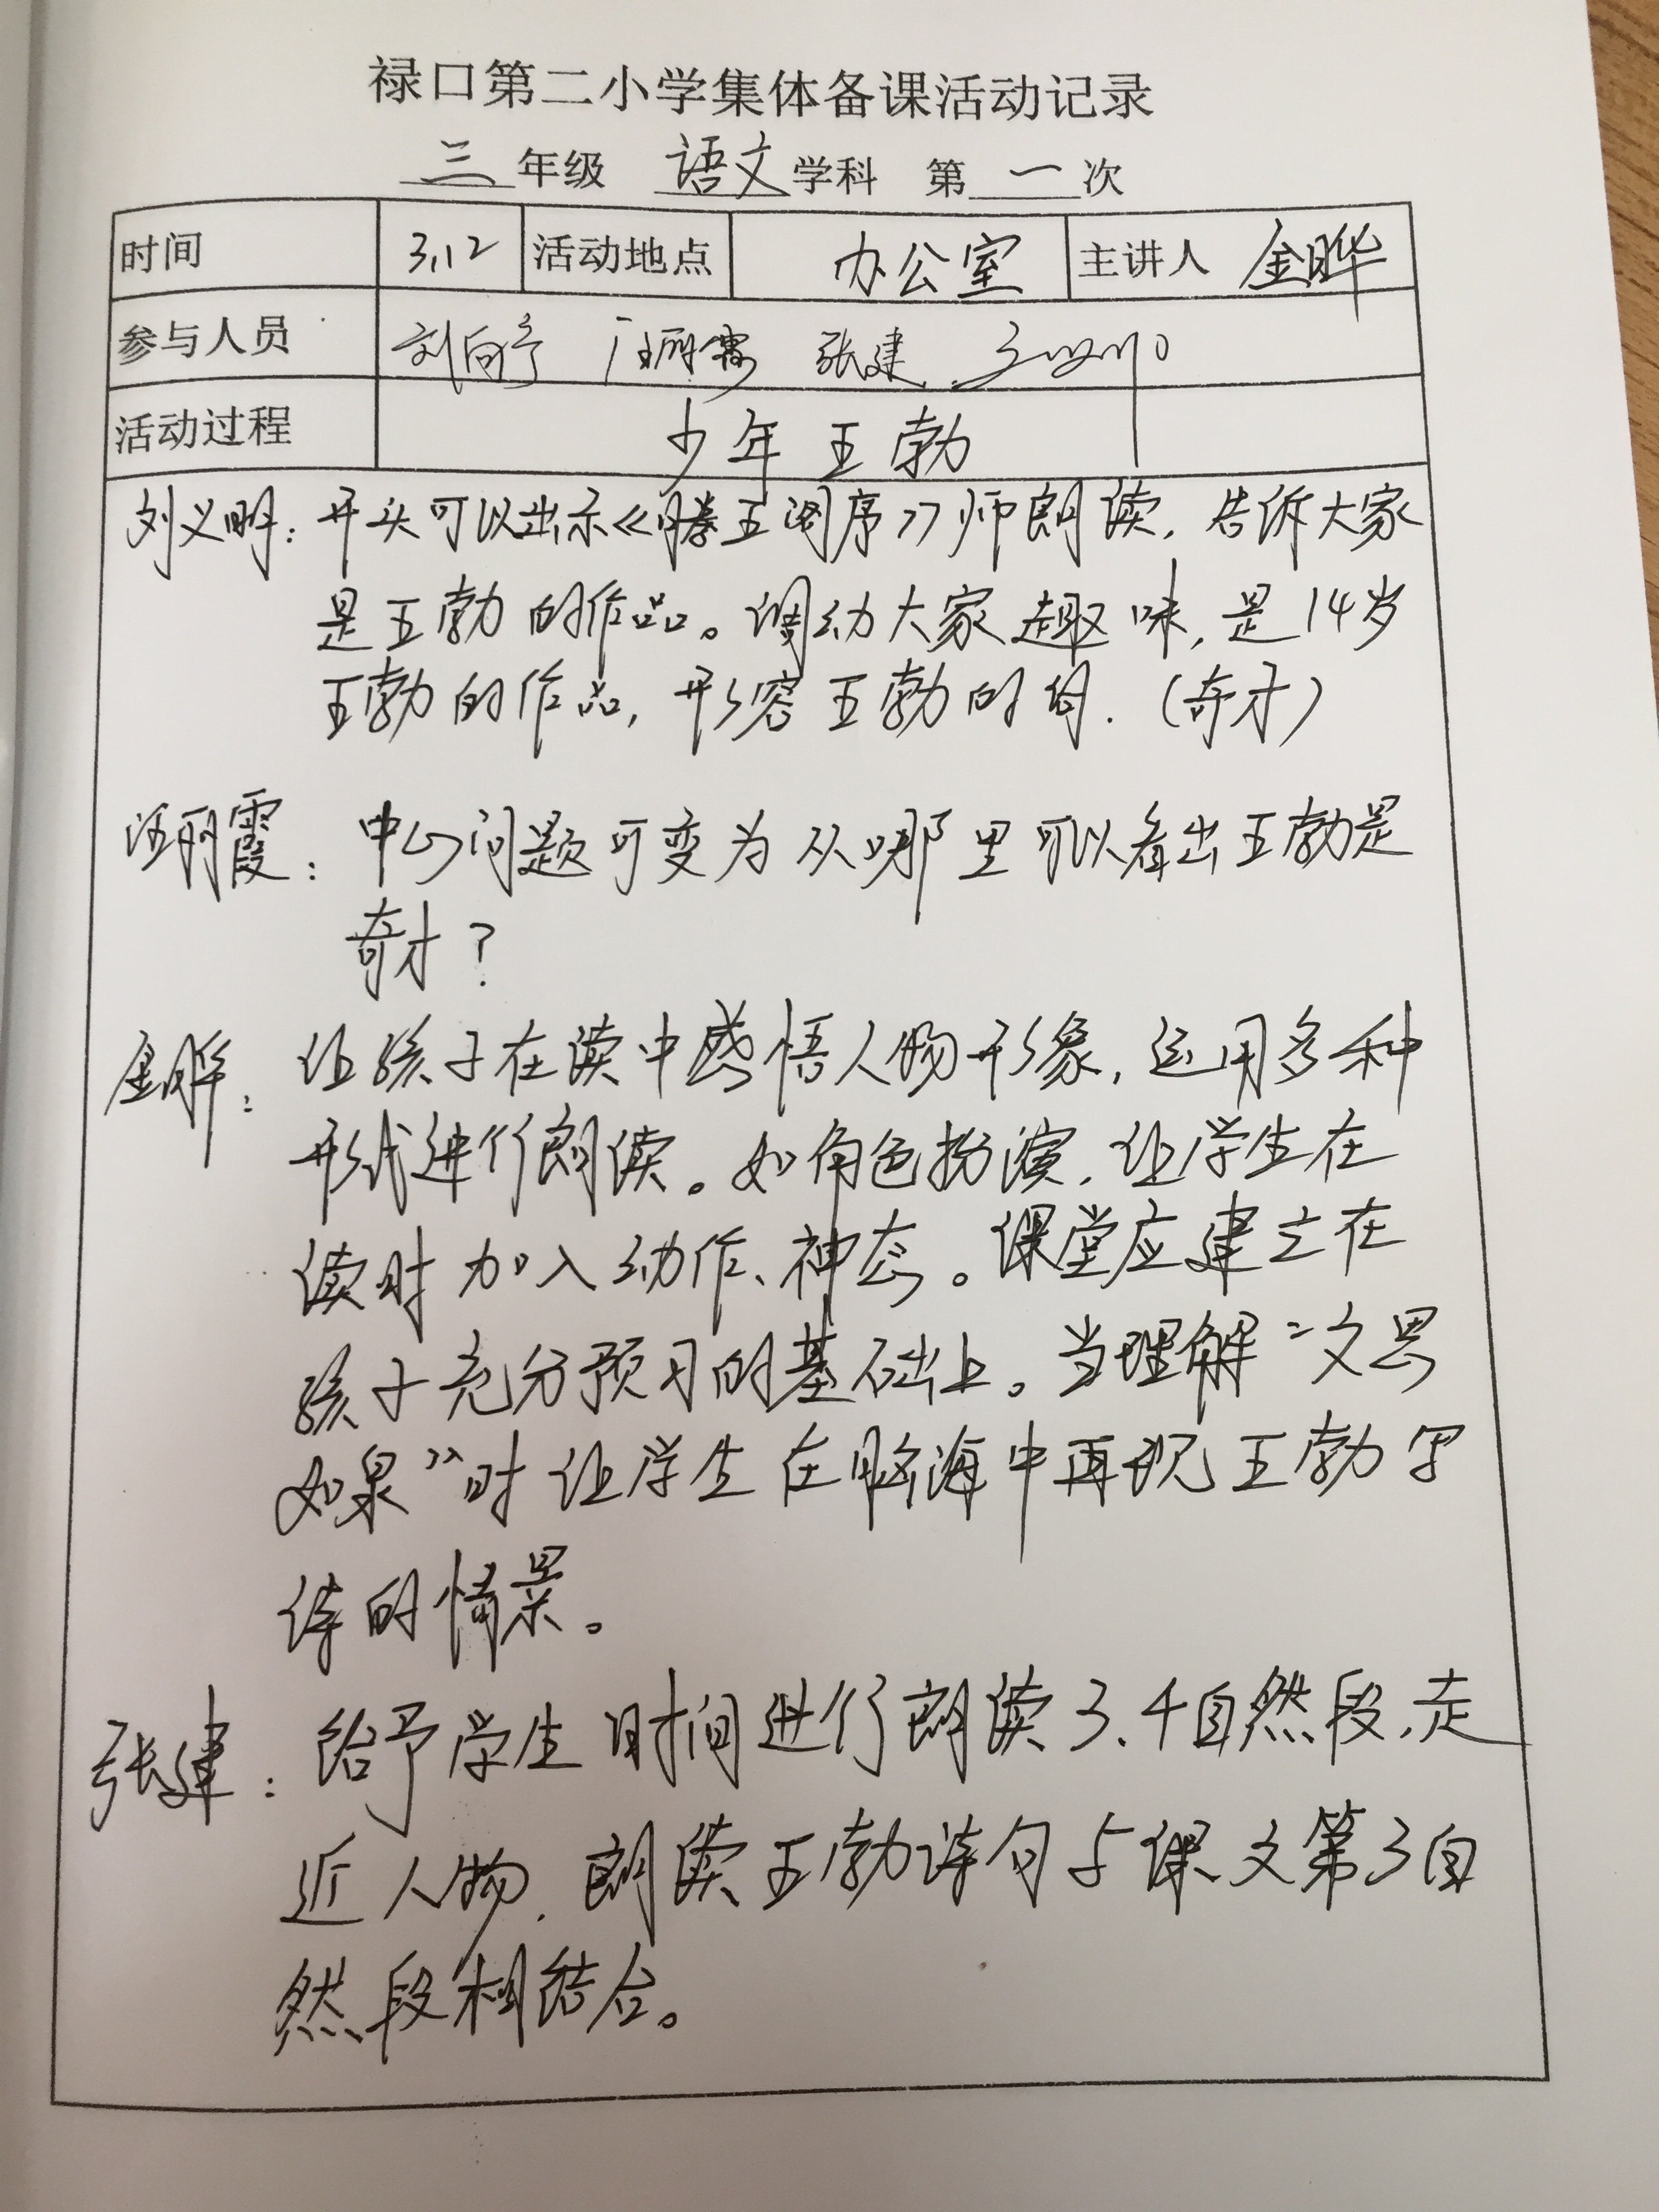 禄口第二小学集体备课活动记录
三年级 语文学科 第一次
时间 3.12 活动地点 办公室 主讲人 金晔
参与人员 汪丽霞 张建
活动过程 少年王勃
刘义明：开头可以出示《滕王阁序》师朗读，告诉大家
是王勃的作品。调动大家趣味，是14岁
王勃的作品，形容王勃的句.（奇才）
汪丽霞：中心问题可变为从哪里可以看出王勃是
奇才？
金晔：让孩子在读中感悟人物形象，运用多种
形式进行朗读。如角色扮演，让学生在
读时加入动作、神态。课堂应建立在
孩子充分预习的基础上。当理解“文思
如泉”时让学生在脑海中再现王勃写
诗的情景。
张建：给予学生时间进行朗读3、4自然段，走
近人物，朗读王勃诗句与课文第3自
然段相结合。